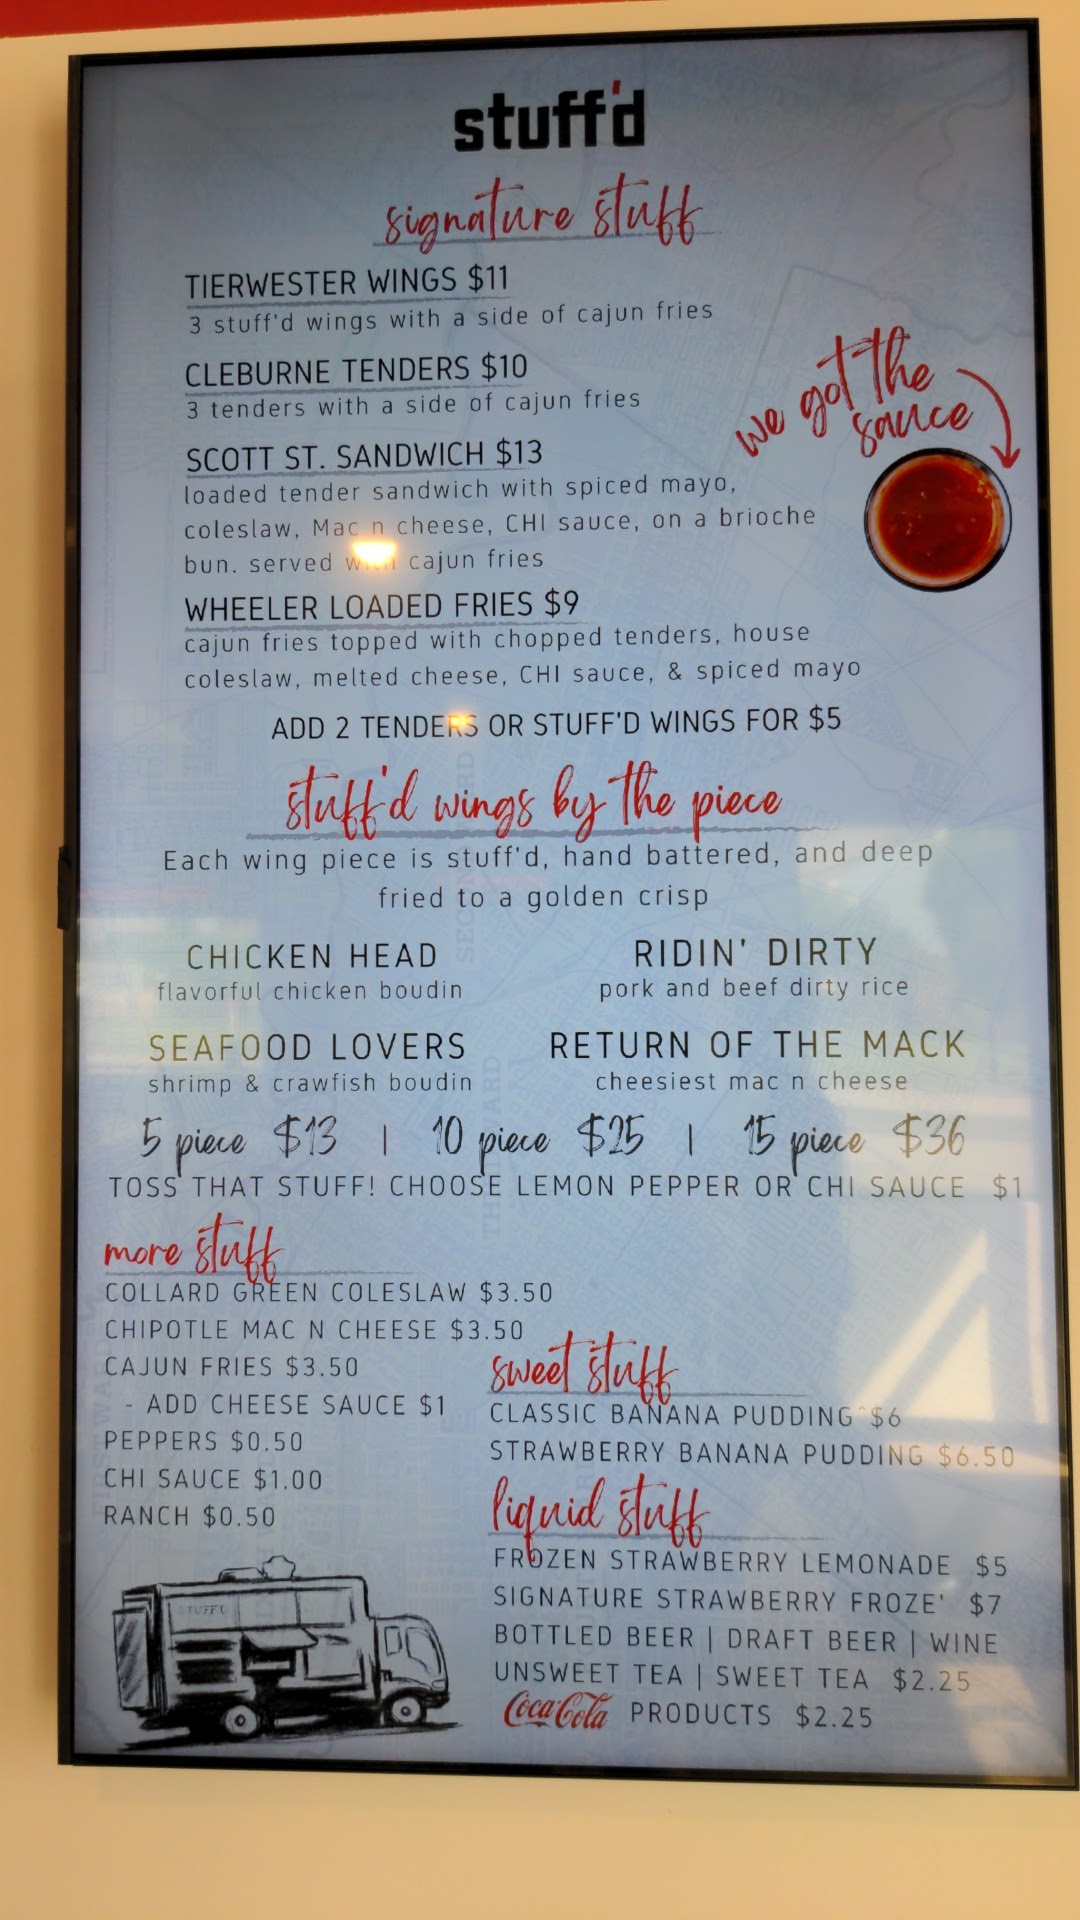 stuff'd
signature stuff
TIERWESTER WINGS $11
3 stuff'd wings with a side of cajun fries
CLEBURNE TENDERS $10
3 tenders with a side of cajun fries
we got the
sauce
SCOTT ST. SANDWICH $13
loaded tender sandwich with spiced mayo,
coleslaw, Mac n cheese, CHI sauce, on a brioche
bun. served with cajun fries
WHEELER LOADED FRIES $9
cajun fries topped with chopped tenders, house
coleslaw, melted cheese, CHI sauce, & spiced mayo
ADD 2 TENDERS OR STUFF'D WINGS FOR $5
stuff'd wings by the piece
Each wing piece is stuff'd, hand battered, and deep
fried to a golden crisp
CHICKEN HEAD
flavorful chicken boudin
RIDIN' DIRTY
pork and beef dirty rice
SEAFOOD LOVERS
shrimp & crawfish boudin
RETURN OF THE MACK
cheesiest mac n cheese
5 piece $13 | 10 piece $25 | 15 piece $36
TOSS THAT STUFF! CHOOSE LEMON PEPPER OR CHI SAUCE $1
more stuff
COLLARD GREEN COLESLAW $3.50
CHIPOTLE MAC N CHEESE $3.50
CAJUN FRIES $3.50
- ADD CHEESE SAUCE $1
PEPPERS $0.50
CHI SAUCE $1.00
RANCH $0.50
sweet stuff
CLASSIC BANANA PUDDING $6
STRAWBERRY BANANA PUDDING $6.50
liquid stuff
FROZEN STRAWBERRY LEMONADE $5
SIGNATURE STRAWBERRY FROZE' $7
BOTTLED BEER | DRAFT BEER | WINE
UNSWEET TEA | SWEET TEA $2.25
Coca-Cola PRODUCTS $2.25
STUFF'D